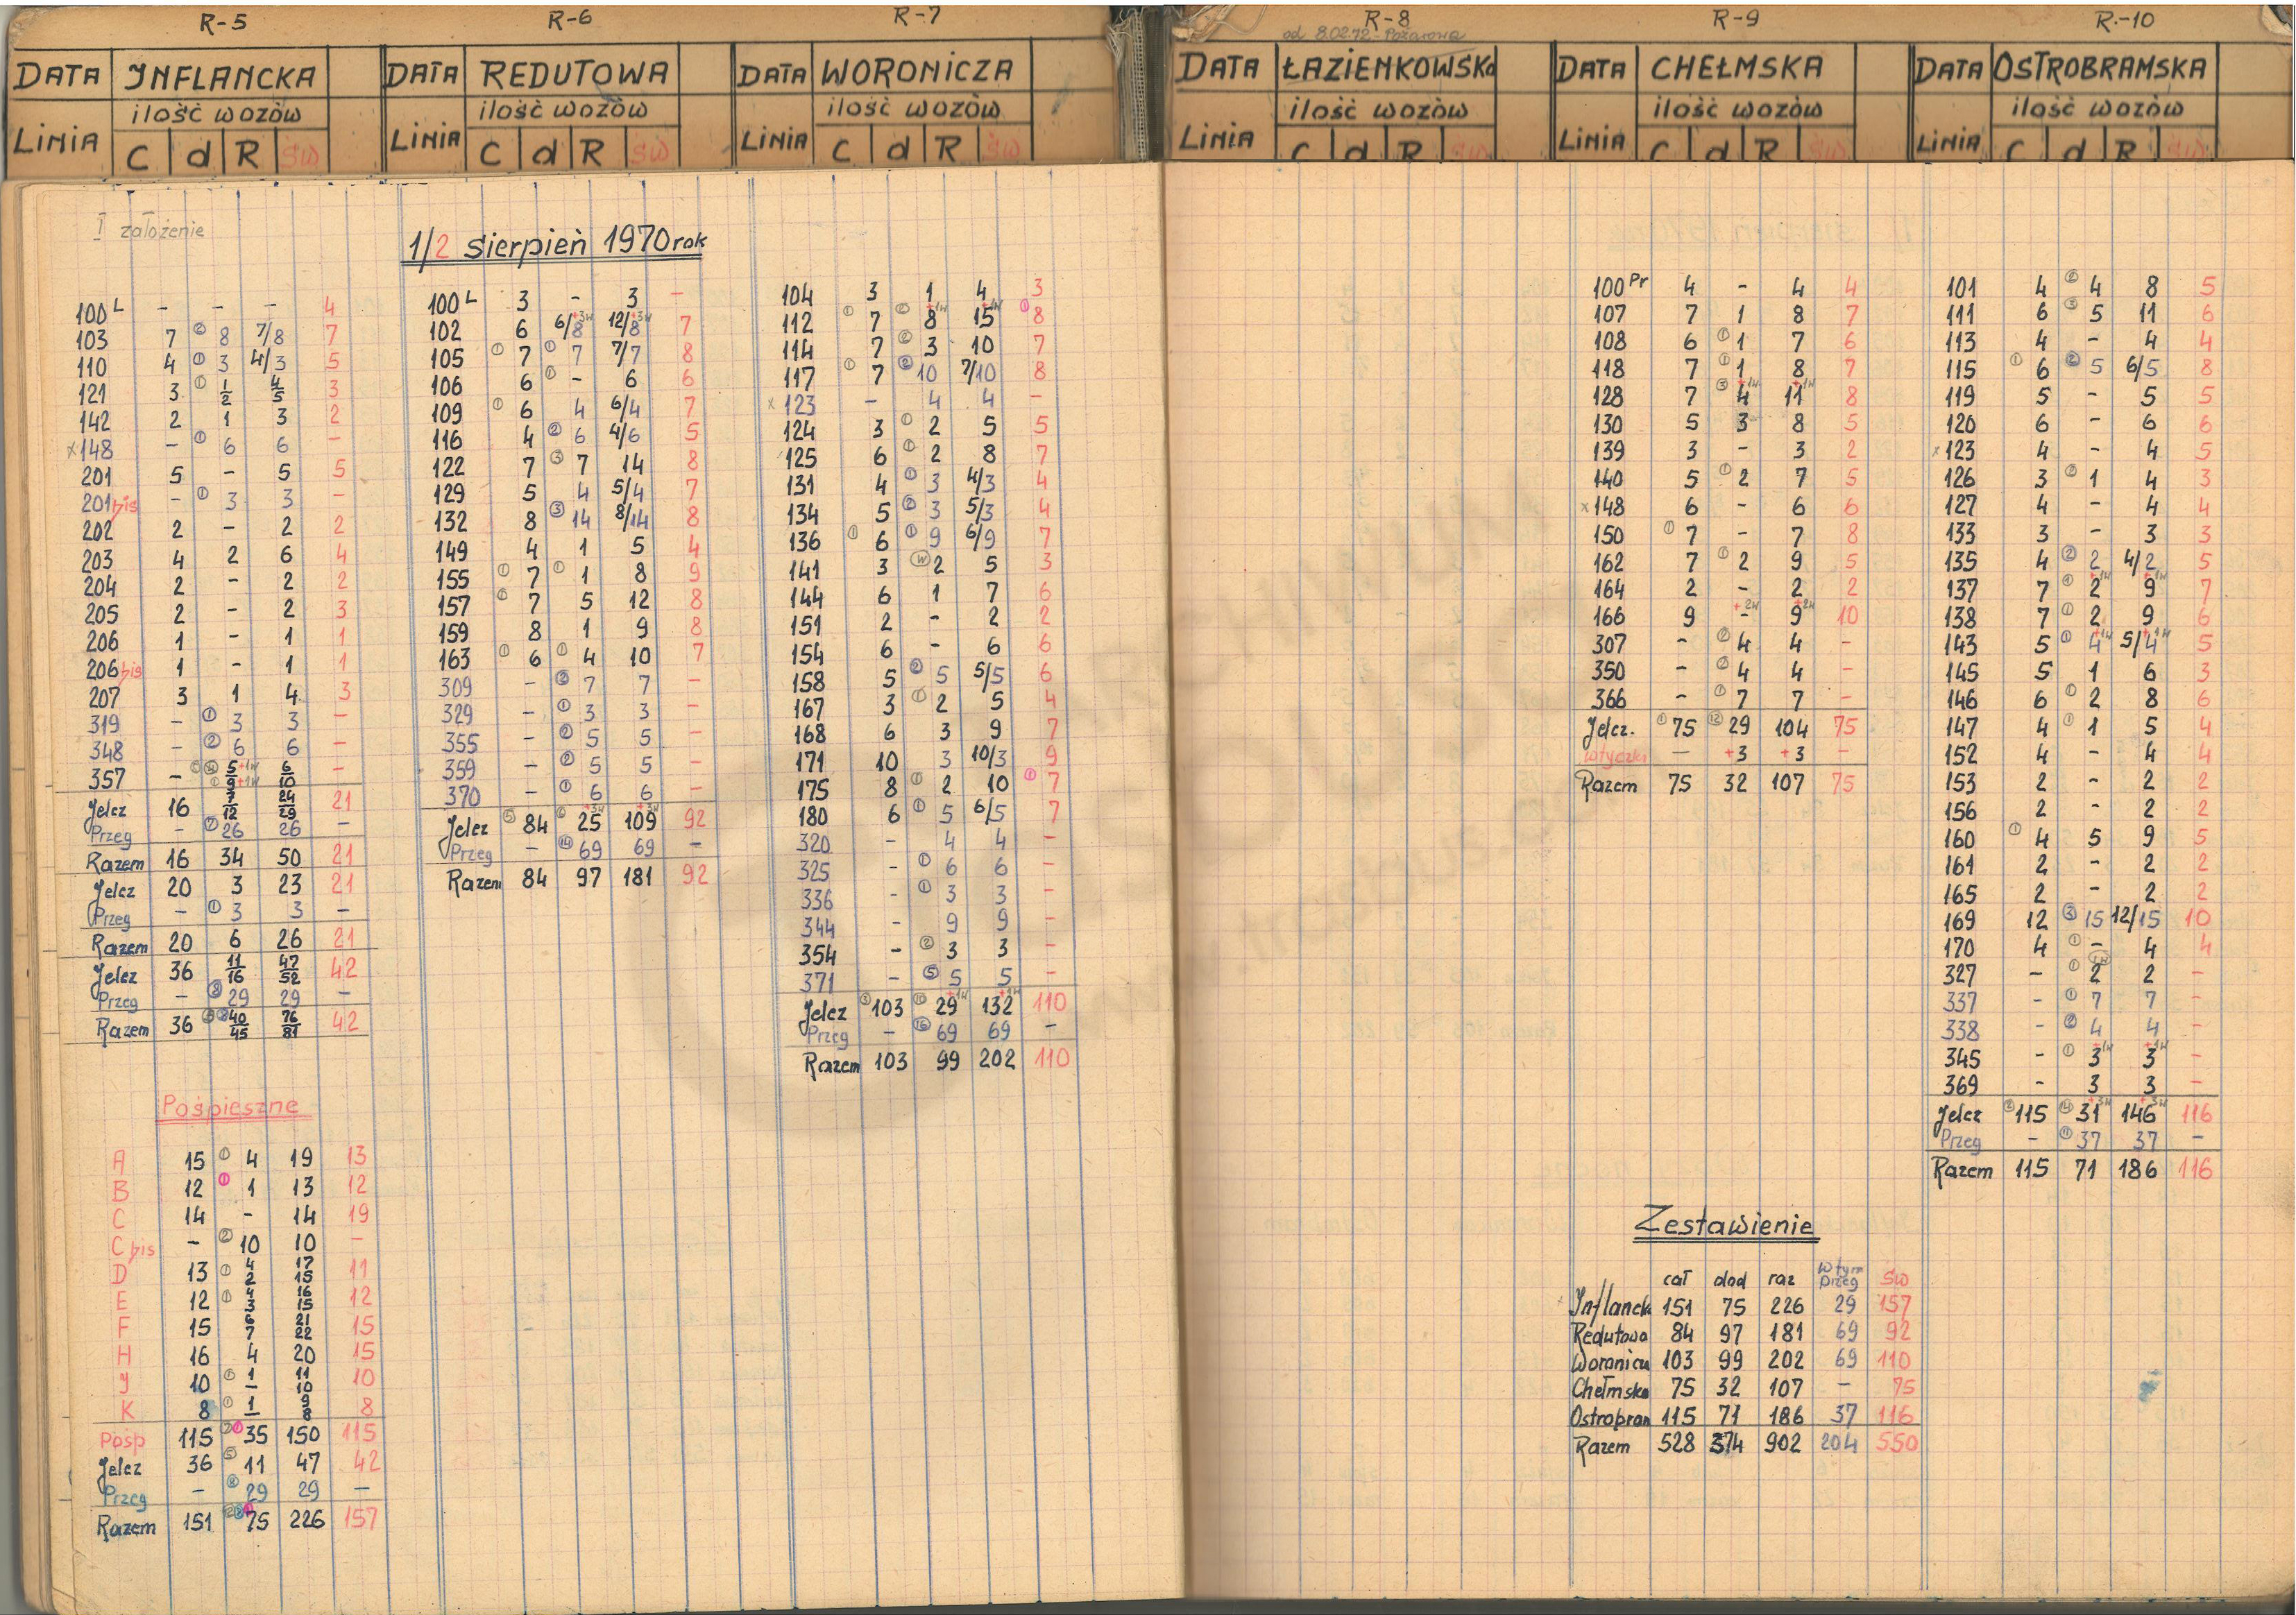 R-5
INFLANCKA
DATA
LINIA
ilość wozów
C d R św
I założenie
1/2 sierpień 1970 rok
100 L - - - 4
103 7 ② 8 7/8 7
110 4 ① 3 4/3 5
121 3 ① 1/2 4/5 3
142 2 1 3 2
x148 - ① 6 6 -
201 5 - 5 5
201 bis - ① 3 3 -
202 2 - 2 2
203 4 2 6 4
204 2 - 2 2
205 2 - 2 3
206 1 - 1 1
206 bis 1 - 1 1
207 3 1 4 3
319 - ① 3 3 -
348 - ② 6 6 -
357 - 5/9 +1w +1w 6/10 -
Jelcz 16 7/12 24/29 21
Przeg - ⑦ 26 26 -
Razem 16 34 50 21
Jelcz 20 3 23 21
Przeg - ① 3 3 -
Razem 20 6 26 21
Jelcz 36 11/16 47/52 42
Przeg - ⑧ 29 29 -
Razem 36 40/45 76/81 42
Pośpieszne
A 15 ① 4 19 13
B 12 ① 1 13 12
C 14 - 14 19
C bis - ② 10 10 -
D 13 ① 4/2 17/15 11
E 12 ① 4/3 16/15 12
F 15 6/7 21/22 15
H 16 4 20 15
J 10 ① 1/- 11/10 10
K 8 ① 1/- 9/8 8
Posp 115 35 150 115
Jelcz 36 ⑤ 11 47 42
Przeg - ⑧ 29 29 -
Razem 151 75 226 157
R-6
DATA
REDUTOWA
LINIA
ilość wozów
C d R św
100 L 3 - 3 -
102 6 6/8 +3w 12/8 +3w 7
105 ① 7 ① 7 7/7 8
106 6 ① - 6 6
109 ① 6 4 6/4 7
116 4 ② 6 4/6 5
122 7 ③ 7 14 8
129 5 4 5/4 7
132 8 ③ 14 8/14 8
149 4 1 5 4
155 ① 7 ① 1 8 9
157 ① 7 5 12 8
159 8 1 9 8
163 ① 6 ① 4 10 7
309 - ② 7 7 -
329 - ① 3 3 -
355 - ② 5 5 -
359 - ② 5 5 -
370 - ① 6 6 -
Jelcz ⑤ 84 25 +3w 109 +3w 92
Przeg - ⑭ 69 69 -
Razem 84 97 181 92
R-7
DATA
WORONICZA
LINIA
ilość wozów
C d R św
104 3 1 4 3
112 ① 7 ② 8 +1w 15 +1w ① 8
114 7 ② 3 10 7
117 ① 7 ② 10 7/10 8
x123 - 4 4 -
124 3 ① 2 5 5
125 6 ① 2 8 7
131 4 ① 3 4/3 4
134 5 ② 3 5/3 4
136 ① 6 ① 9 6/9 7
141 3 (w) 2 5 3
144 6 1 7 6
151 2 - 2 2
154 6 - 6 6
158 5 ② 5 5/5 6
167 3 ① 2 5 4
168 6 3 9 7
171 10 3 10/3 9
175 8 ① 2 10 ① 7
180 6 ① 5 6/5 7
320 - 4 4 -
325 - ① 6 6 -
336 - ① 3 3 -
344 - 9 9 -
354 - ② 3 3 -
371 - ⑤ 5 5 -
Jelcz ③ 103 ⑩ 29 +1w 132 +1w 110
Przeg - ⑯ 69 69 -
Razem 103 99 202 110
R-8
od 8.02.72 - Pożarowa
DATA
ŁAZIENKOWSKa
LINIA
ilość wozów
C d R św
R-9
DATA
CHEŁMSKA
LINIA
ilość wozów
C d R św
100 Pr 4 - 4 4
107 7 1 8 7
108 6 ① 1 7 6
118 7 ① 1 8 7
128 7 ③ 4 +1w 11 +1w 8
130 5 3 8 5
139 3 - 3 2
140 5 ① 2 7 5
x148 6 - 6 6
150 ① 7 - 7 8
162 7 ① 2 9 5
164 2 - 2 2
166 9 - +2w 9 +2w 10
307 - ② 4 4 -
350 - ② 4 4 -
366 - ① 7 7 -
Jelcz. ① 75 ⑫ 29 104 75
Wtyczki - +3 +3 -
Razem 75 32 107 75
Zestawienie
cał dod raz W tym przeg św
Inflanck 151 75 226 29 157
Redutowa 84 97 181 69 92
Woronicz 103 99 202 69 110
Chełmska 75 32 107 - 75
Ostrobram 115 71 186 37 116
Razem 528 374 902 204 550
R.-10
DATA
OSTROBRAMSKA
LINIA
ilość wozów
C d R św
101 4 ② 4 8 5
111 6 ③ 5 11 6
113 4 - 4 4
115 ① 6 ② 5 6/5 8
119 5 - 5 5
120 6 - 6 6
x123 4 - 4 5
126 3 ① 1 4 3
127 4 - 4 4
133 3 - 3 3
135 4 ② 2 4/2 5
137 7 ① 2 +1w 9 +1w 7
138 7 ① 2 9 6
143 5 ① 4 +1w 5/4 +1w 5
145 5 1 6 3
146 6 ① 2 8 6
147 4 ① 1 5 4
152 4 - 4 4
153 2 - 2 2
156 2 - 2 2
160 ① 4 5 9 5
161 2 - 2 2
165 2 - 2 2
169 12 ③ 15 12/15 10
170 4 ① - 4 4
327 - ① 2 2 -
337 - ① 7 7 -
338 - ② 4 4 -
345 - ① 3 +1w 3 +1w -
369 - 3 3 -
Jelcz ② 115 ⑭ 31 +3w 146 +3w 116
Przeg - ⑪ 37 37 -
Razem 115 71 186 116